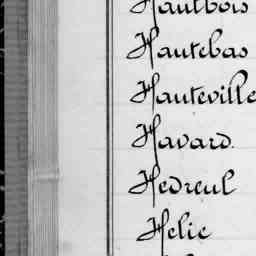 Hautbois
Hautebas
Hauteville
Havard.
Hedreul
Helie